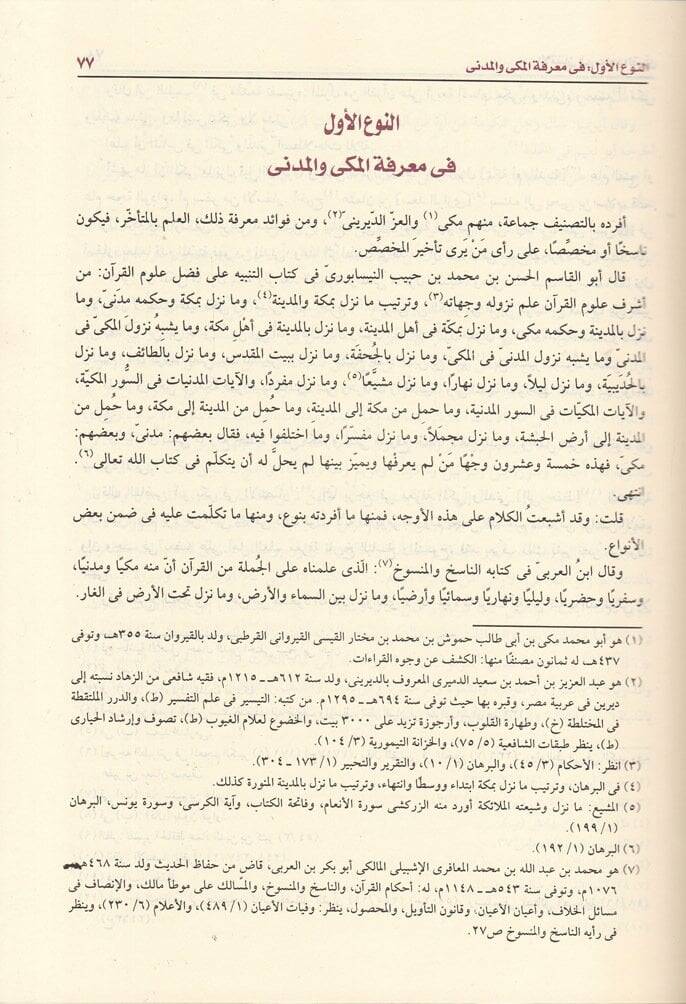 النوع الأول: فى معرفة المكى والمدنى ٧٧
النوع الأول
فى معرفة المكى والمدنى
أفرده بالتصنيف جماعة، منهم مكى(١) والعز الدّيرينى(٢)، ومن فوائد معرفة ذلك، العلم بالمتأخّر، فيكون
ناسخًا أو مخصِّصًا، على رأى مَنْ يَرى تأخيرَ المخصِّص.
قال أبو القاسم الحسن بن محمد بن حبيب النيسابورى فى كتاب التنبيه على فضل علوم القرآن: من
أشرف علوم القرآن علم نزوله وجِهاته(٣)، وترتيب ما نزل بمكة والمدينة(٤)، وما نزل بمكة وحكمه مدَنىّ، وما
نزل بالمدينة وحكمه مكى، وما نزل بمكّة فى أهل المدينة، وما نزل بالمدينة فى أهْلِ مكة، وما يشبِهُ نزولَ المكىّ فى
المدنىّ وما يشبه نزول المدنىّ فى المكىّ، وما نزل بالجُحفَة، وما نزل ببيت المقدس، وما نزل بالطائف، وما نزل
بالحُدَيبيَة، وما نزل ليلاً، وما نزل نهارًا، وما نزل مشيَّعًا(٥)، وما نزل مفردًا، والآيات المدنيات فى السُّور المكيّة،
والآيات المكيّات فى السور المدنية، وما حمل من مكة إلى المدينةِ، وما حُمِل من المدينة إلى مكة، وما حُمِل من
المدينة إلى أرض الحبشة، وما نزل مجمَلاً، وما نزل مفسّرًا، وما اختلفوا فيه، فقال بعضهم: مدنىّ، وبعضهم:
مكىّ، فهذه خمسة وعشرون وجْهًا مَنْ لم يعرفْها ويميّز بينها لم يحلَّ له أن يتكلّم فى كتاب الله تعالى(٦).
انتهى.
قلت: وقد أشبعتُ الكلام على هذه الأوجه، فمنها ما أفردته بنوع، ومنها ما تكلّمت عليه فى ضمن بعض
الأنواع.
وقال ابنُ العربىّ فى كتابه الناسخ والمنسوخ(٧): الّذى علمناه على الجُملة من القرآن أنّ منه مكيّا ومدنيّا،
وسفريّا وحضريّا، وليليّا ونهاريّا وسمائيّا وأرضيّا، وما نزل بين السماء والأرض، وما نزل تحت الأرض فى الغار.
(١) هو أبو محمد مكى بن أبى طالب حموش بن محمد بن مختار القيسى القيروانى القرطبى، ولد بالقيروان سنة ٣٥٥هـ، وتوفى
٤٣٧هـ، له ثمانون مصنفًا منها: الكشف عن وجوه القراءات.
(٢) هو عبد العزيز بن أحمد بن سعيد الدميرى المعروف بالديرينى، ولد سنة ٦١٢هـ ـ ١٢١٥م، فقيه شافعى من الزهاد نسبته إلى
ديرين فى غربية مصر، وقبره بها حيث توفى سنة ٦٩٤هـ ـ ١٢٩٥م. من كتبه: التيسير فى علم التفسير (ط)، والدرر الملتقطة
فى المختلطة (خ)، وطهارة القلوب، وأرجوزة تزيد على ٣٠٠٠ بيت، والخضوع لعلام الغيوب (ط)، تصوف وإرشاد الحيارى
(ط)، ينظر طبقات الشافعية (٥/ ٧٥)، والخزانة التيمورية (٣/ ١٠٤).
(٣) انظر: الأحكام (٣/ ٤٥)، والبرهان (١/ ١٠)، والتقرير والتحبير (١/ ١٧٣ ـ ٣٠٤).
(٤) فى البرهان، وترتيب ما نزل بمكة ابتداء ووسطًا وانتهاء، وترتيب ما نزل بالمدينة المنورة كذلك.
(٥) المشيع: ما نزل وشيعته الملائكة أورد منه الزركشى سورة الأنعام، وفاتحة الكتاب، وآية الكرسى، وسورة يونس، البرهان
(١/ ١٩٩).
(٦) البرهان (١/ ١٩٢).
(٧) هو محمد بن عبد الله بن محمد المعافرى الإشبيلى المالكى أبو بكر بن العربى، قاض من حفاظ الحديث ولد سنة ٤٦٨هـ ـ
١٠٧٦م، وتوفى سنة ٥٤٣هـ ـ ١١٤٨م، له: أحكام القرآن، والناسخ والمنسوخ، والمسالك على موطأ مالك، والإنصاف فى
مسائل الخلاف، وأعيان الأعيان، وقانون التأويل، والمحصول، ينظر: وفيات الأعيان (١/ ٤٨٩)، والأعلام (٦/ ٢٣٠)، وينظر
فى رأيه الناسخ والمنسوخ ص٢٧.